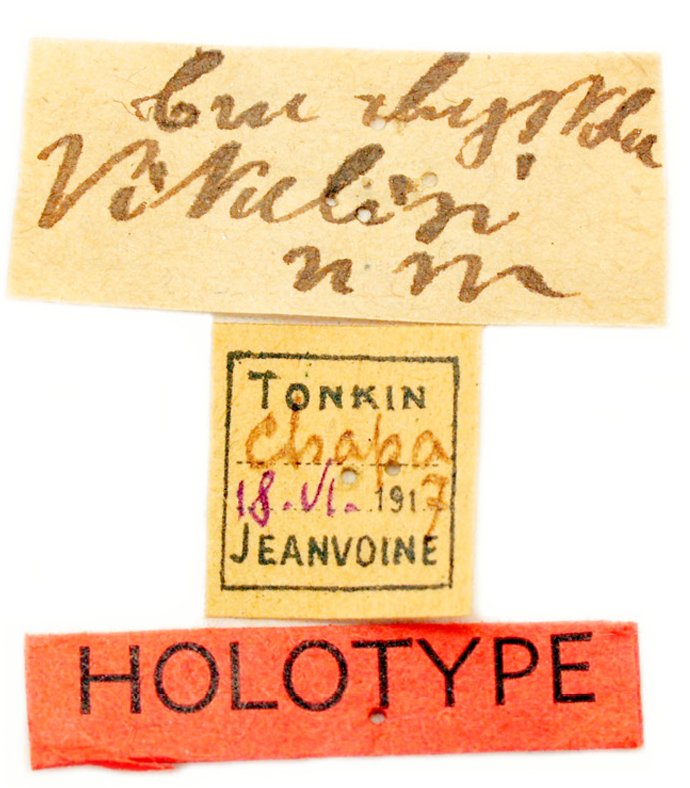 Vitalisi
TONKIN
Chapa
18.VI. 1917
JEANVOINE
HOLOTYPE